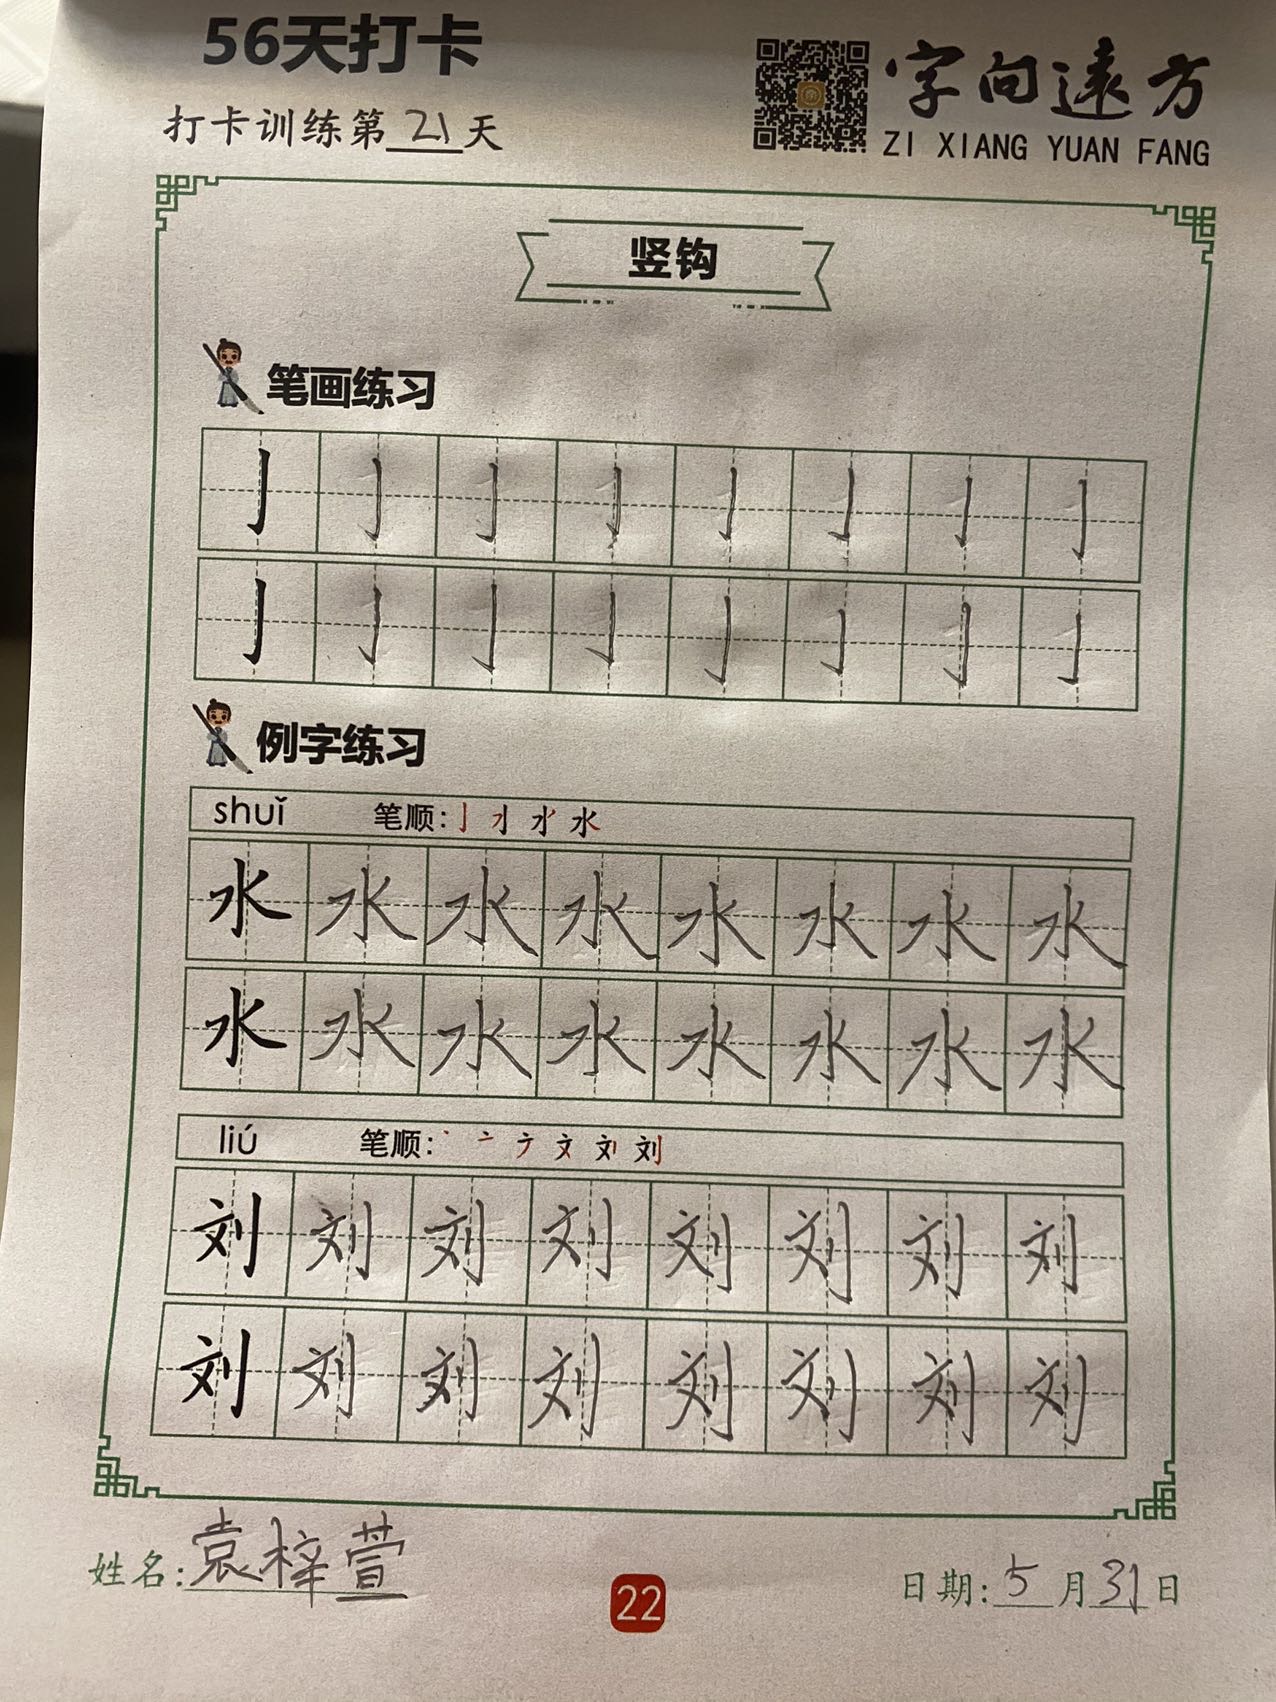 56天打卡
字向遠方
打卡训练第21天
ZI XIANG YUAN FANG
竖钩
笔画练习
亅亅亅亅亅亅亅亅
亅亅亅亅亅亅亅亅
例字练习
shuǐ 笔顺:
水水水水水水水水
水水水水水水水水
liú 笔顺:
刘刘刘刘刘刘刘刘
刘刘刘刘刘刘刘刘
姓名:袁梓萱
22
日期:5月31日